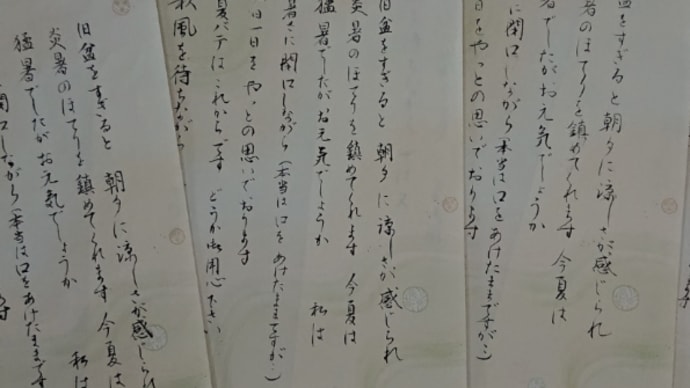 盆をすぎると 朝夕に涼しさが感じられ
暑のほてりを鎮めてくれます 今夏は
暑でしたがお元気でしょうか
に閉口しながら(本当は口をあけたままですが…)
日をやっとの思いでおります
旧盆をすぎると 朝夕に涼しさが感じられ
炎暑のほてりを鎮めてくれます 今夏は
猛暑でしたがお元気でしょうか 私は
暑さに閉口しながら(本当は口をあけたままですが…)
日一日をやっとの思いであります
夏バテはこれからです どうか御用心下さい
秋風を待ちながら
旧盆をすぎると 朝夕に涼しさが感じられ
炎暑のほてりを鎮めてくれます 今夏は
猛暑でしたがお元気でしょうか 私は
閉口しながら(本当は口をあけたままです